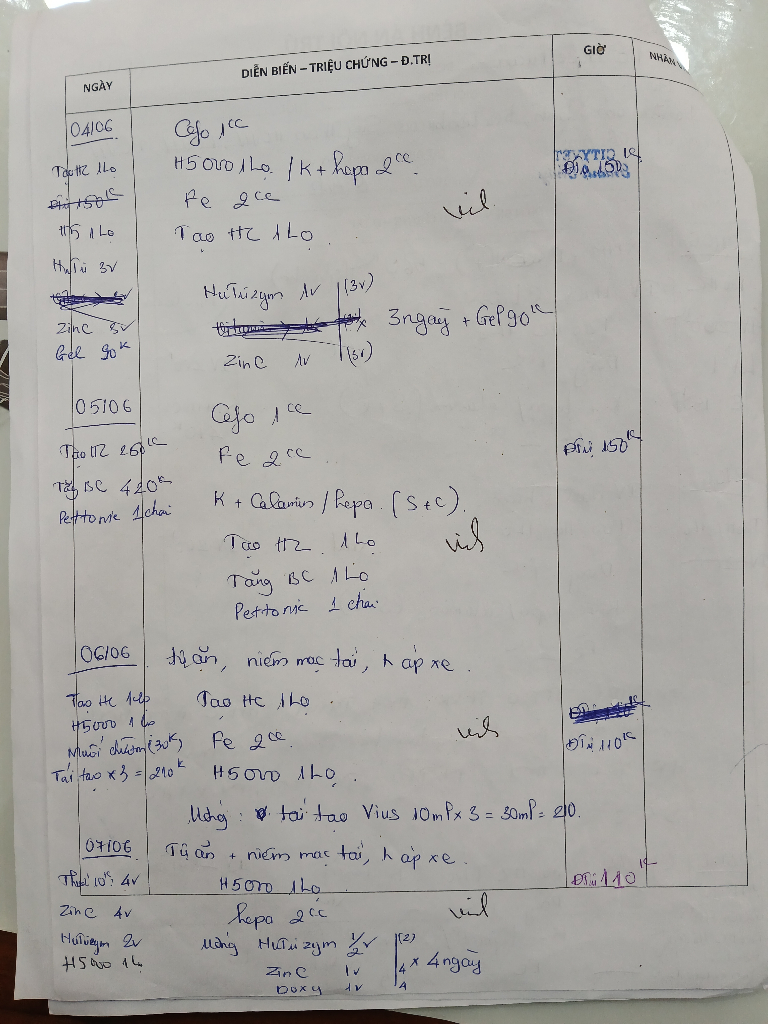 NGÀY
DIỄN BIẾN – TRIỆU CHỨNG – Đ.TRỊ
GIỜ
NHÂN
04/06
Tạo HC 1Lọ
H5 1Lọ
NuTri 3v
ZinC 3v
Gel 90K
Cefo 1cc
H5000 1Lọ / K + hepa 2cc
Fe 2cc
Tạo HC 1Lọ
NuTrizym 1v (3v)
3 ngày + Gel 90K
ZinC 1v (3v)
CITY PET
ĐTrị 150K
05/06
Tạo HC 260K
Tăng BC 420K
Pettonic 1 chai
Cefo 1cc
Fe 2cc
K + Calamin / hepa. (S + C).
Tạo HC 1Lọ
Tăng BC 1Lọ
Pettonic 1 chai
ĐTrị 150K
06/06
Tạo HC 1Lọ
H5000 1Lọ
Muối chườm (30K)
Tái tạo x 3 = 210K
Tự ăn, niêm mạc tái, h áp xe.
Tạo HC 1Lọ
Fe 2cc
H5000 1Lọ
Uống : tái tạo Vius 10ml x 3 = 30ml = 210.
ĐTrị 110K
07/06
4v
ZinC 4v
NuTrizym 2v
H5000 1Lọ
Tự ăn + niêm mạc tái, h áp xe.
H5000 1Lọ
hepa 2cc
Uống NuTrizym 1/2v (2)
ZinC 1v 4 x 4 ngày
Doxy 1v 4
ĐTrị 110K